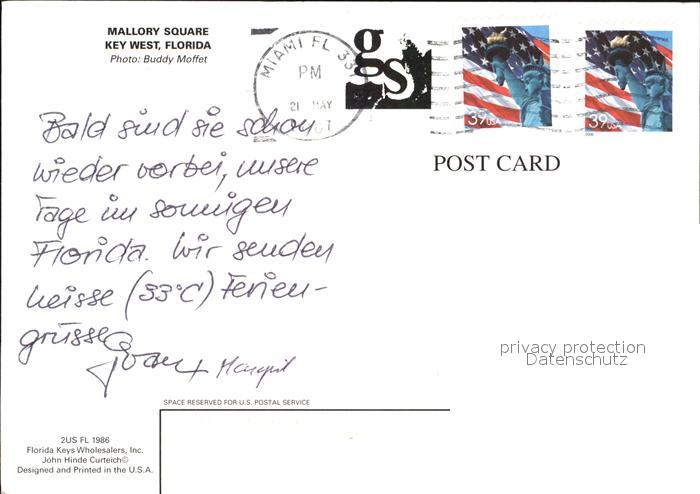 MALLORY SQUARE
KEY WEST, FLORIDA
Photo: Buddy Moffet
MIAMI FL 33
PM
21 MAY
gs
39 USA
39 USA
POST CARD
Bald sind sie schon
wieder vorbei, unsere
Tage im sonnigen
Florida. Wir senden
heisse (33°C) Ferien-
grüsse
privacy protection
Datenschutz
SPACE RESERVED FOR U.S. POSTAL SERVICE
2US FL 1986
Florida Keys Wholesalers, Inc.
John Hinde Curteich©
Designed and Printed in the U.S.A.